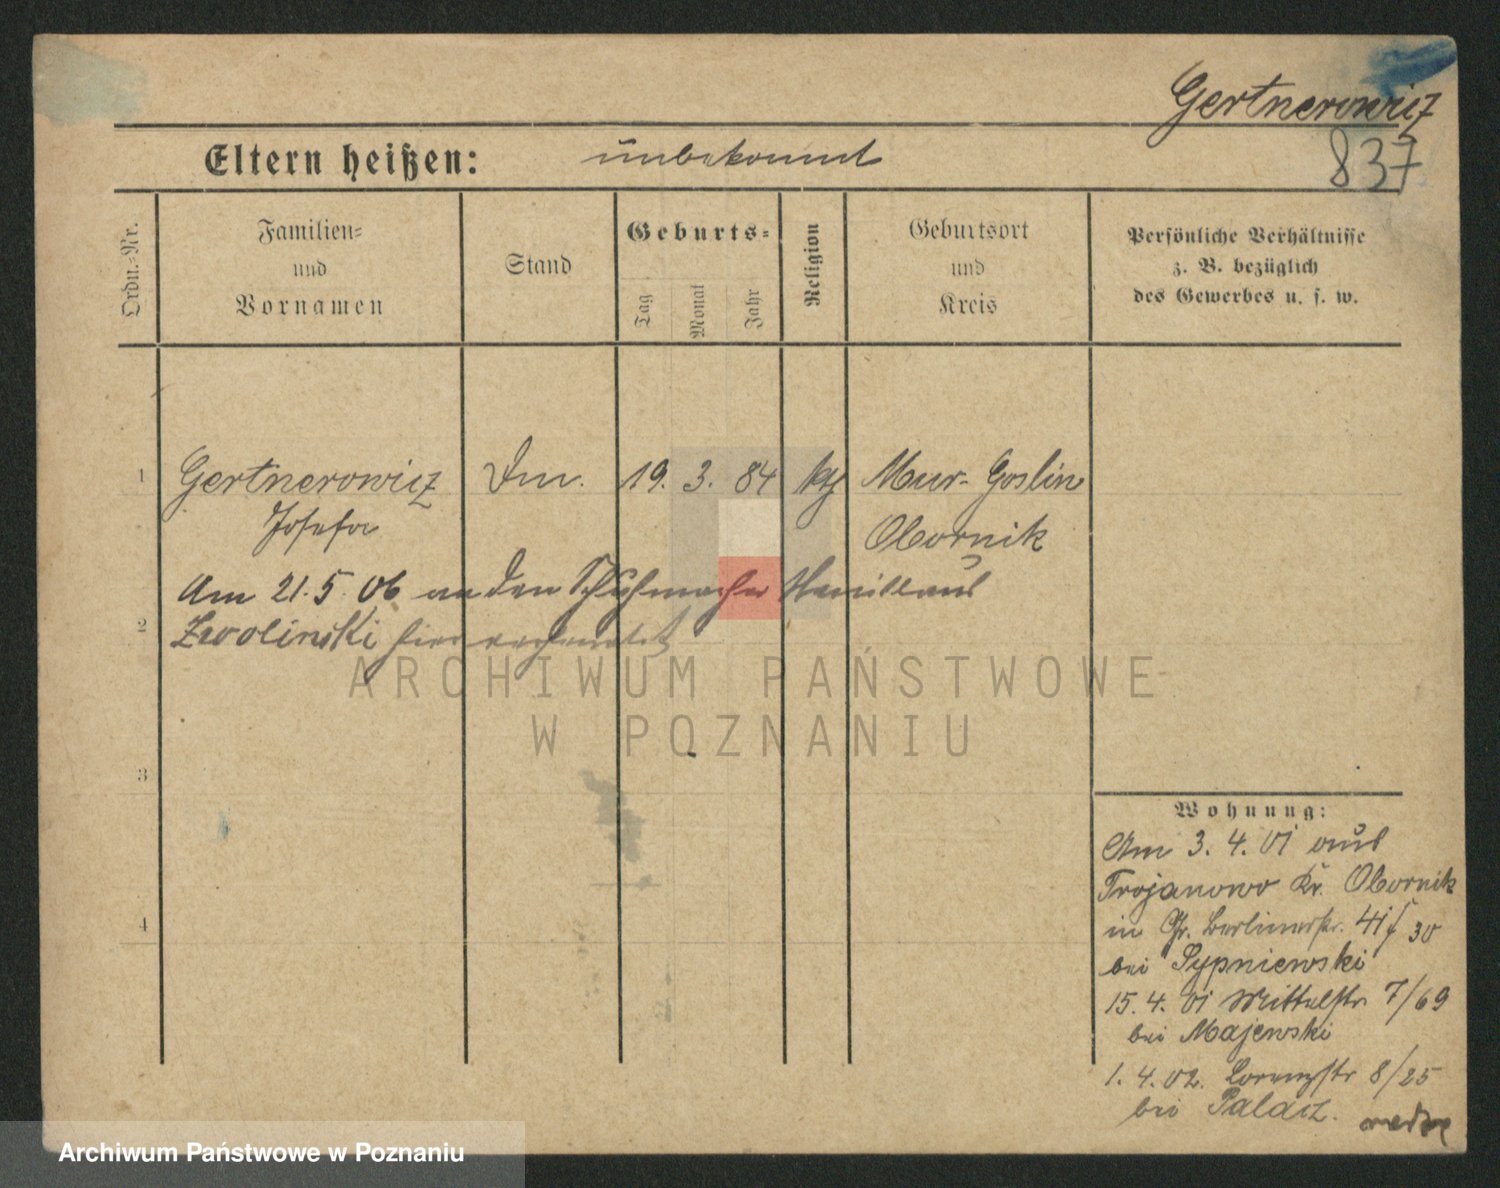 Gertnerowicz
837
Eltern heißen: unbekannt
Ordn.-Nr.
Familien-
und
Vornamen
Stand
Geburts-
Tag
Monat
Jahr
Religion
Geburtsort
und
Kreis
Persönliche Verhältnisse
z. B. bezüglich
des Gewerbes u. s. w.
1 Gertnerowicz Dm. 19. 3. 84 kth Mur-Goslin
Josefa Obornik
Am 21.5.06 an den Schuhmacher Stanislaus
2 Zwolinski hier verheiratet
ARCHIWUM PAŃSTWOWE
W POZNANIU
3
4
Wohnung:
Am 3. 4. 01 aus
Trojanowo Kr. Obornik
in Gr. Berlinerstr. 41/30
bei Sypniewski
15. 4. 01 Mittelstr 7/69
bei Majewski
1. 4. 02. Lorenzstr 8/25
bei Palacz.
Archiwum Państwowe w Poznaniu